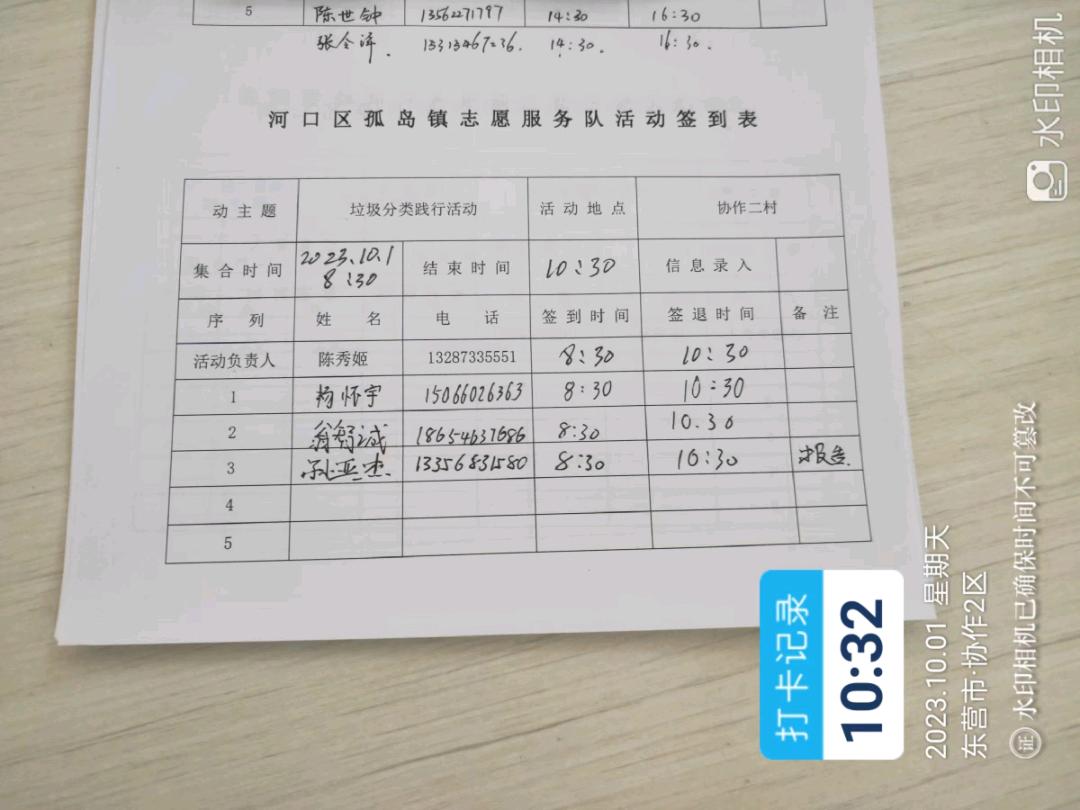 5 陈世钟 13562271797 14:30 16:30
14:30. 16:30.
河口区孤岛镇志愿服务队活动签到表
动主题 垃圾分类践行活动 活动地点 协作二村
集合时间 2023.10.1 8:30 结束时间 10:30 信息录入
序列 姓名 电话 签到时间 签退时间 备注
活动负责人 陈秀姬 13287335551 8:30 10:30
1 杨怀宇 15066026363 8:30 10:30
2 翁舒诚 18654637686 8:30 10.30
3 孙亚杰 13356831580 8:30 10:30 报告
4
5
打卡记录
10:32
2023.10.01 星期天
东营市·协作2区
证 水印相机已确保时间不可篡改
水印相机